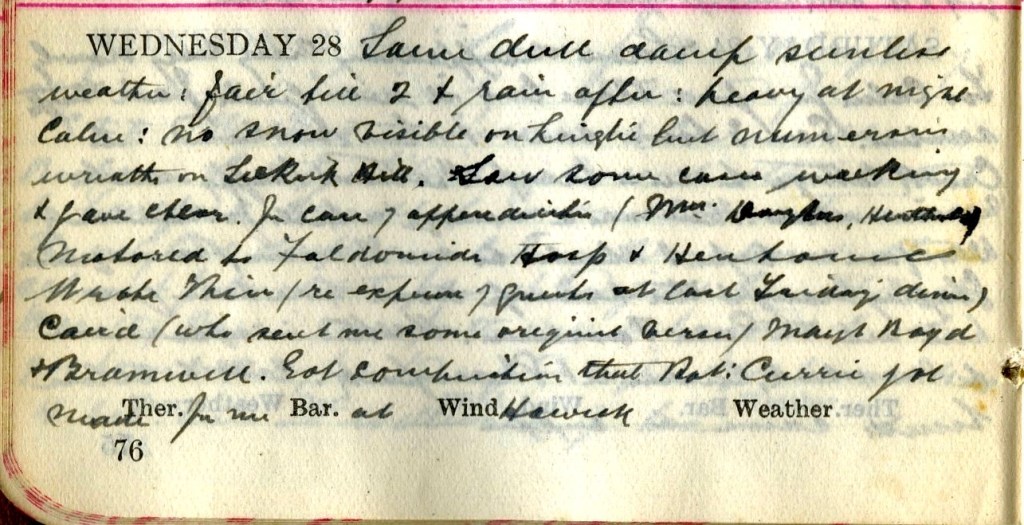 WEDNESDAY 28 Same dull damp sunless
weather: fair till 2 & rain after: heavy at night
Calm: no snow visible on but numerous
wreaths on Hill. Saw some cases walking
& gave chlor. for case of appendicitis (Mrs. Douglas,
Motored to Faldonside Hosp & Henhouse
Wrote Thin (re expenses of guests at last Friday's dinner)
Caird (who sent me some original verses) Boyd
& Bramwell. Got that Rob: Currie got
Ther. Bar. Wind Weather
made for me at Hawick
76